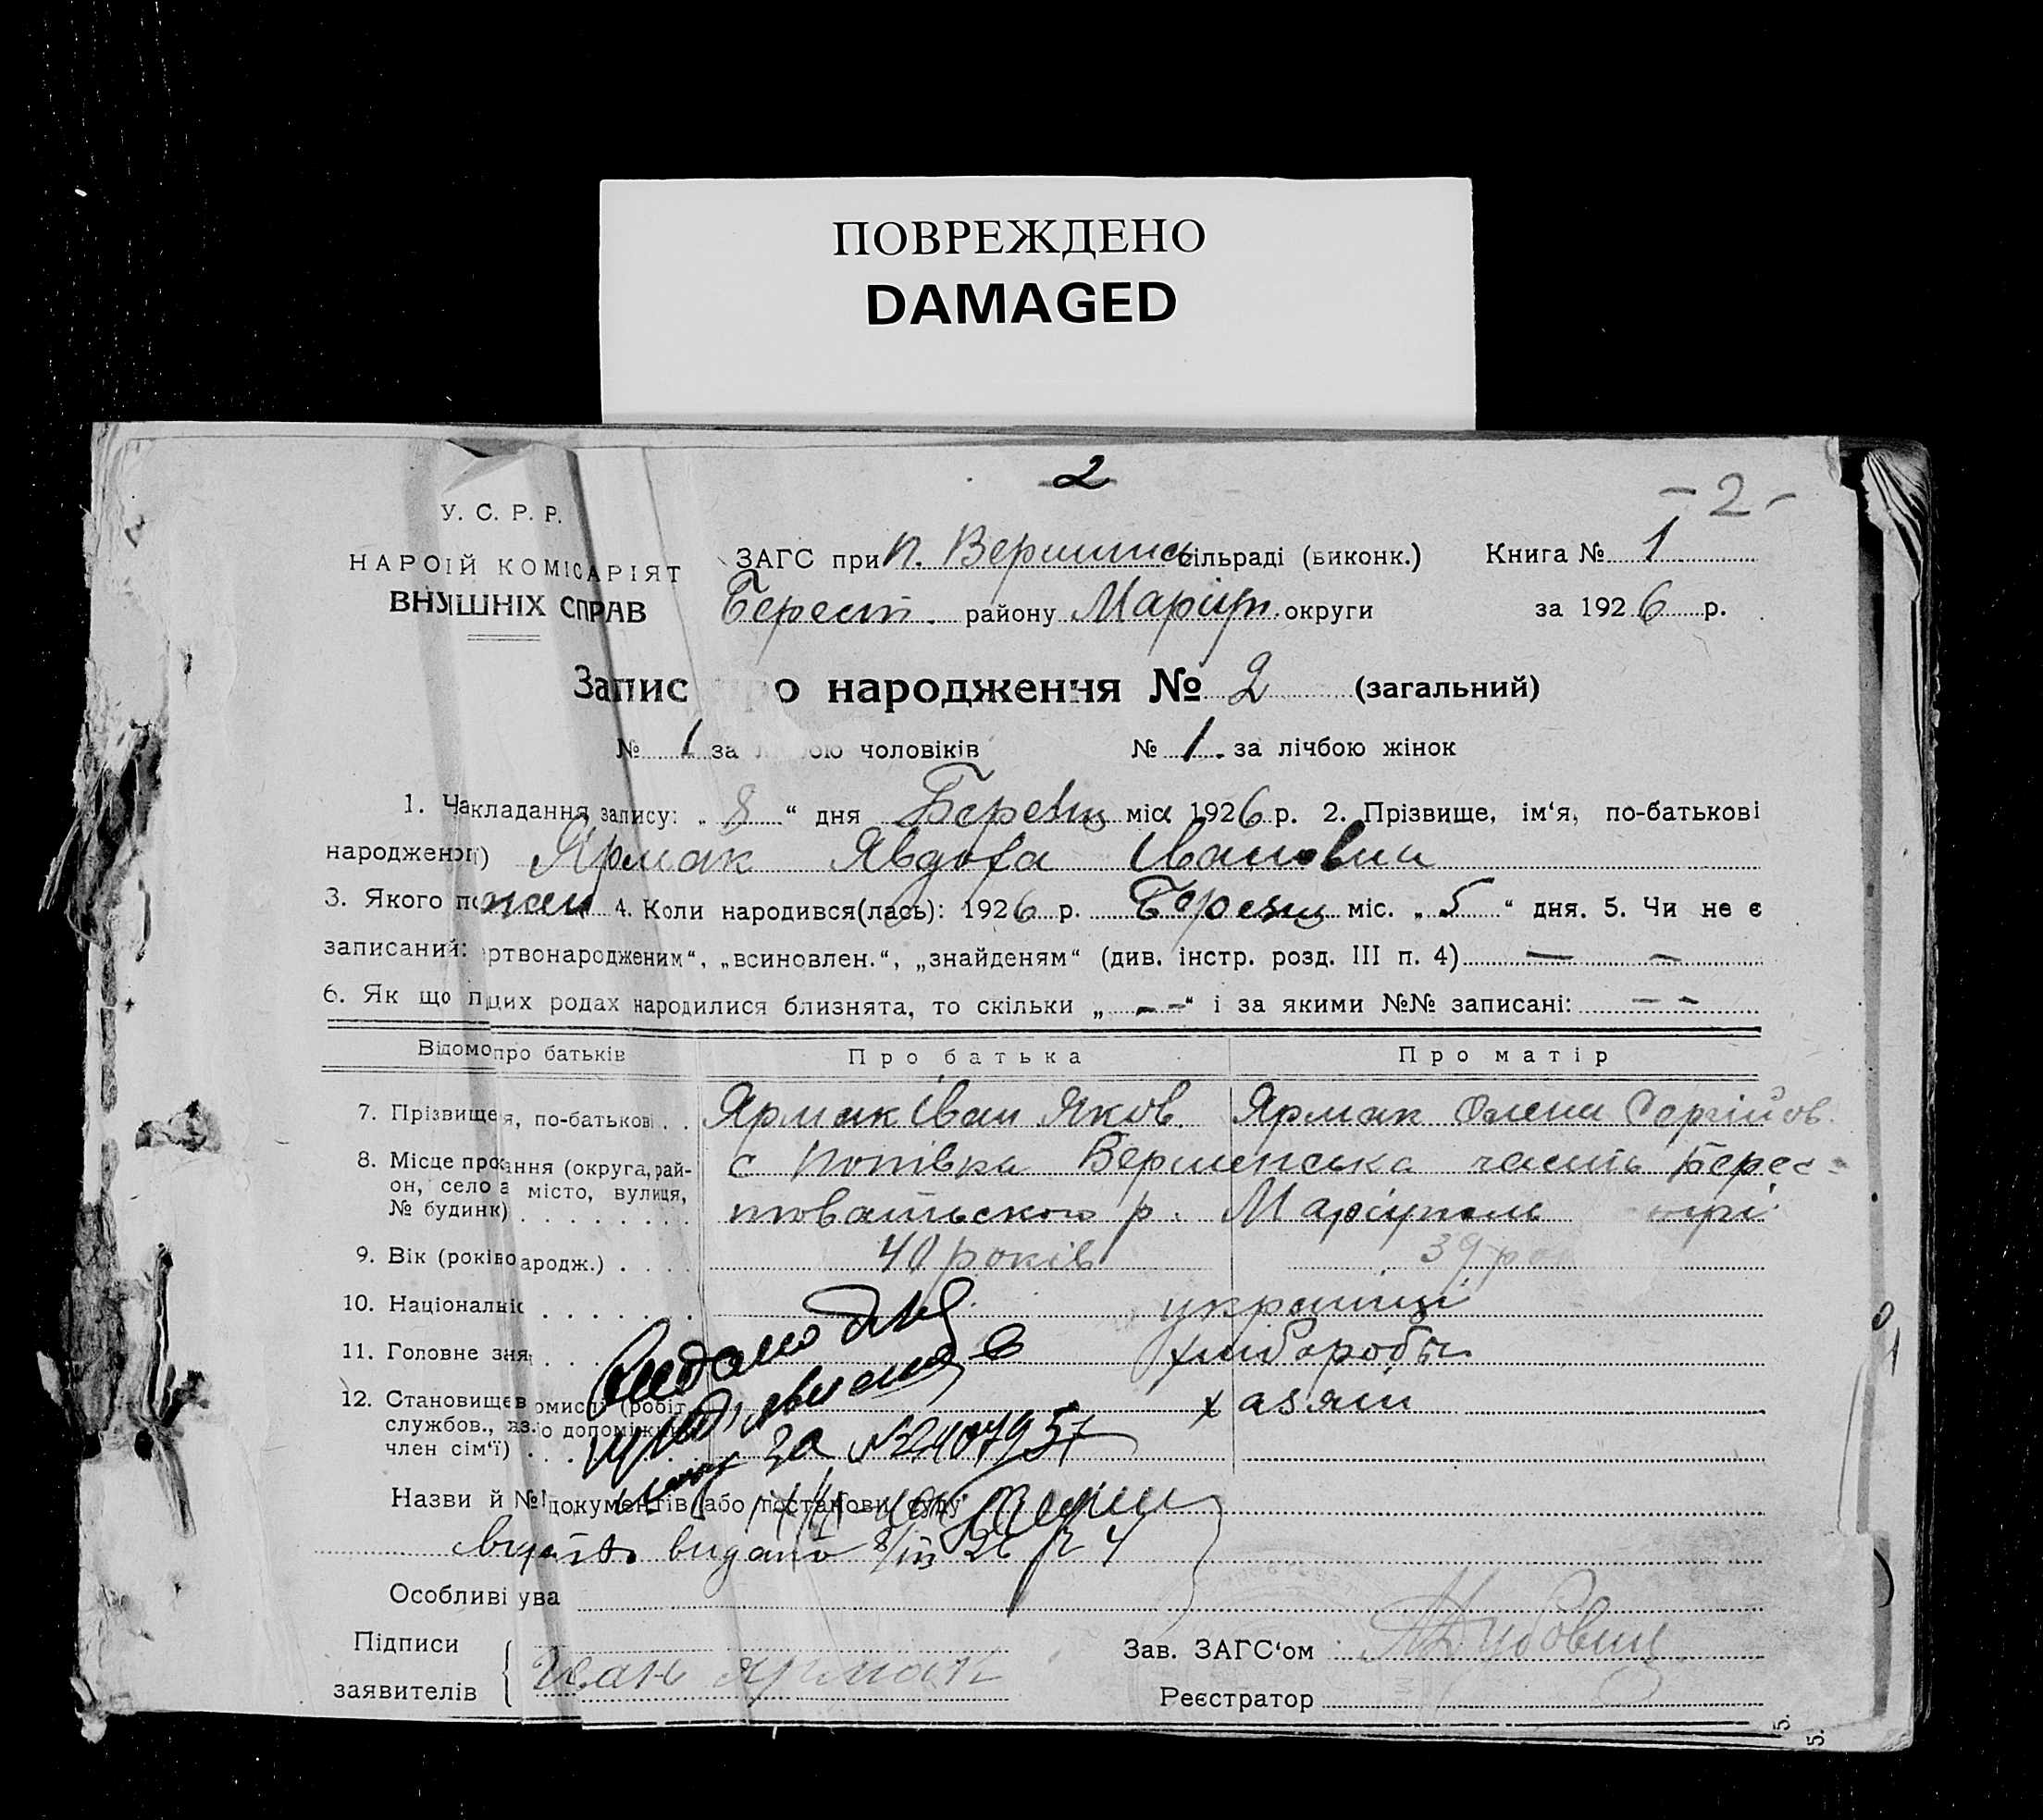 ПОВРЕЖДЕНО
DAMAGED
2
- 2 -
У. С. Р. Р.
НАРОІЙ КОМІСАРІЯТ
ВНУІШНІХ СПРАВ
ЗАГС при п. Вершинс сільраді (виконк.) Книга № 1
Берест. району Маріуп. округи за 1926 р.
Запис про народження № 2 (загальний)
№ 1 за ою чоловіків № 1. за лічбою жінок
1. Чакладання запису: „ 8 “ дня Березц міс 1926 р. 2. Прізвище, ім‘я, по-батькові
народжен Ярмак Явдоха Івановна
3. Якого п жен 4. Коли народився(лась): 1926 р. Березц міс. „ 5 “ дня. 5. Чи не є
записаний: ртвонародженим“, „всиновлен.“, „знайденям“ (див. інстр. розд. III п. 4) — —
6. Як що п цих родах народилися близнята, то скільки „ - - “ і за якими №№ записані: - -
Відомо про батьків Про батька Про матір
7. Прізвище я, по-батькові . . Ярмак Іван Яков. Ярмак Олена Сергійов.
8. Місце про ання (округа, рай- с Попівка Вершенська часть Берес-
он, село а місто, вулиця,
№ будинк) . . . . . . . . товатського р. Маріуполь
9. Вік (років ародж.) . . . . 40 років 39 рок
10. Національніс . . . . . . . українці
11. Головне зня . . . хлібороби
12. Становище в омислі (робіт. хазяїн
службов., аз. о допоміжн.
член сім‘ї) . . .
Видано
за № 2407957
Назви й № документів (або постанови суду
видано 8/III 26 р 4
Особливі ува
Підписи
заявителів Иван Ярмак
Зав. ЗАГС‘ом
Реєстратор
5.
5.